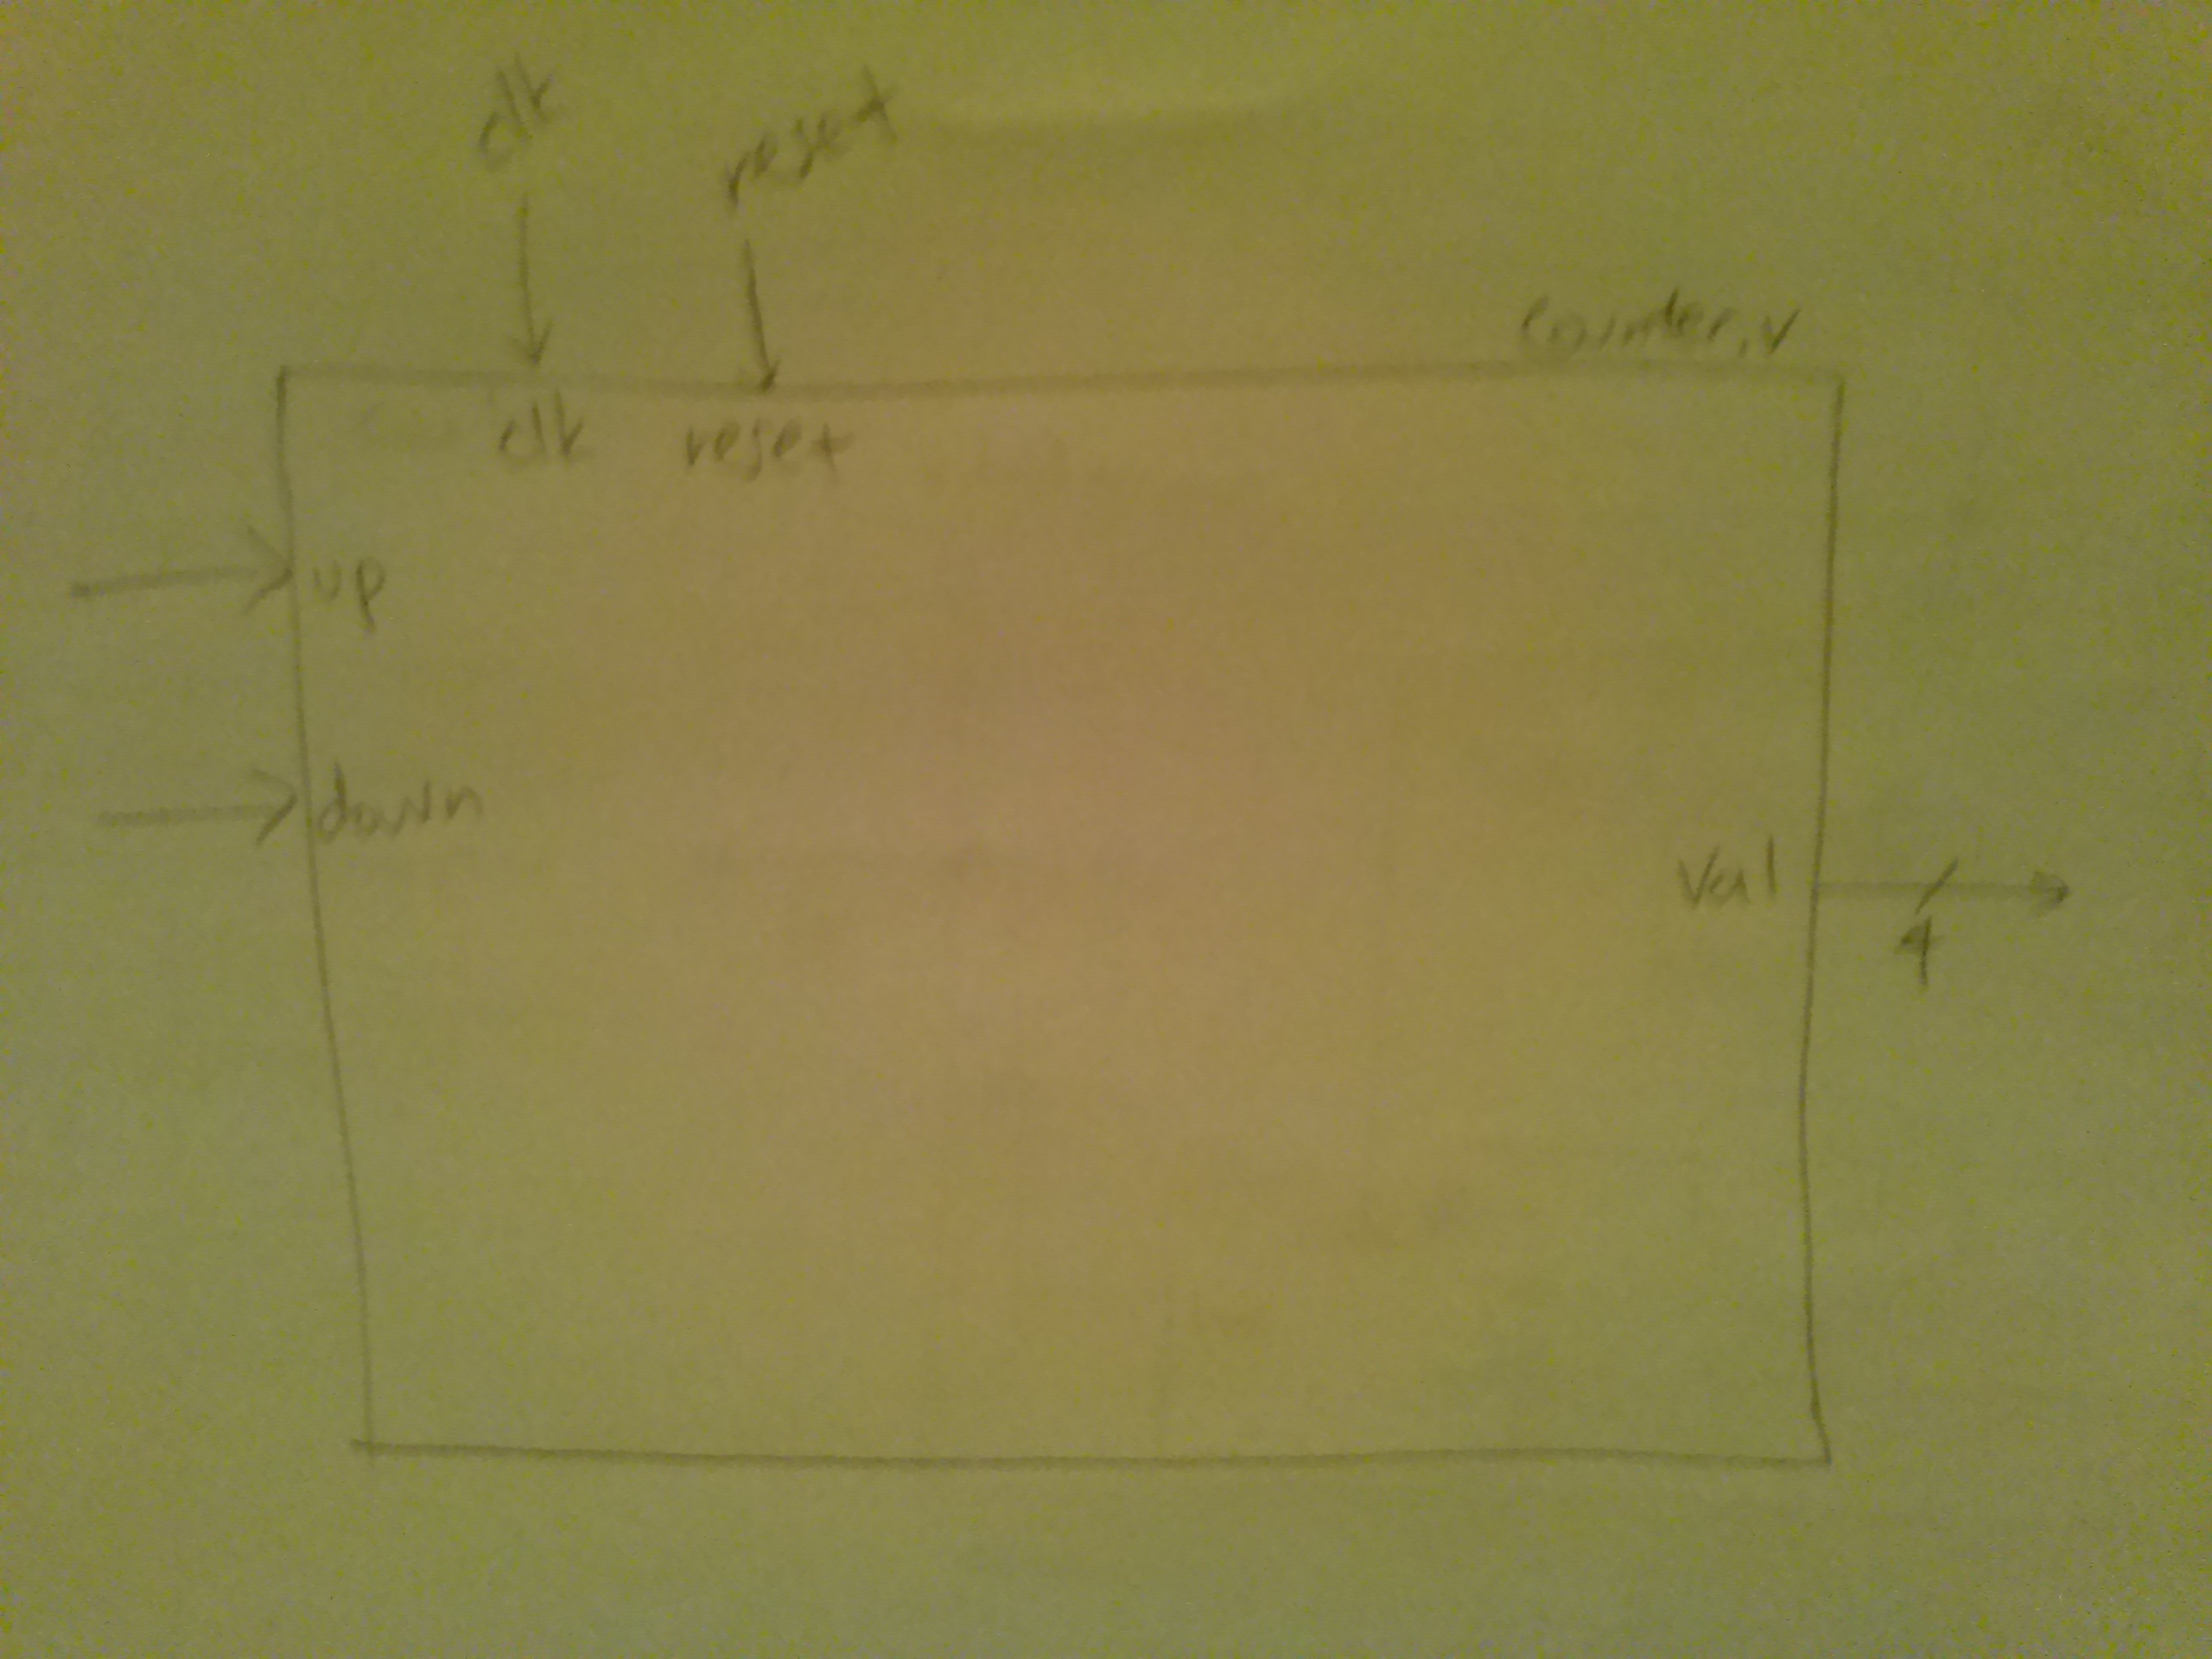 clk
reset
counter.v
clk reset
up
down
Val
4